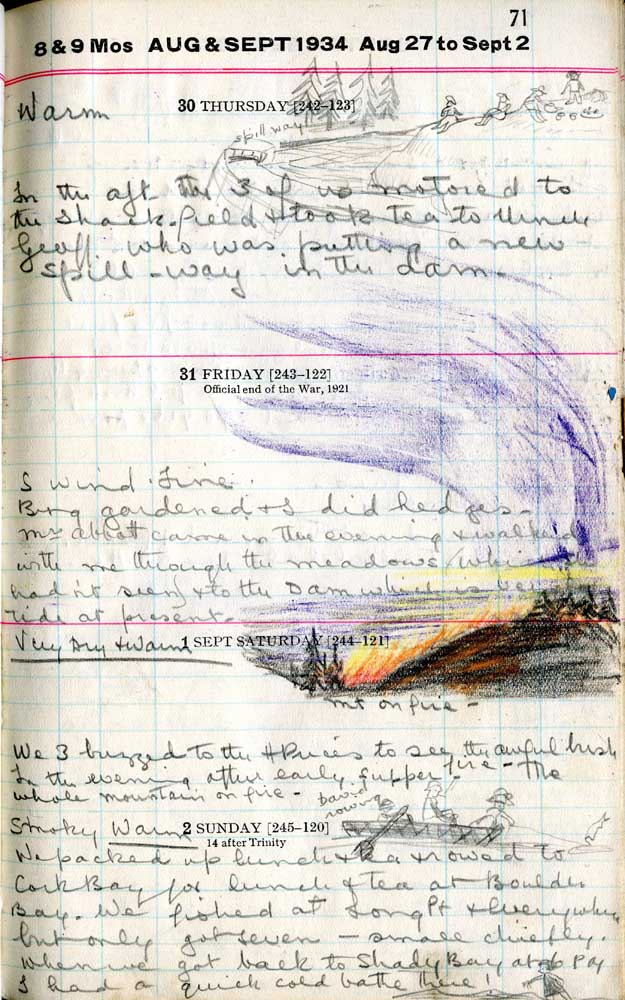 71
8 & 9 Mos AUG & SEPT 1934 Aug 27 to Sept 2
Warm
30 THURSDAY [242–123]
spill way
In the aft the 3 of us motored to
the Shack-field & took tea to Uncle
Geoff - who was putting a new
spill-way in the dam.
31 FRIDAY [243–122]
Official end of the War, 1921
S wind. Fine.
gardened & I did hedges.
Mrs Abbott came in the evening & walked
with me through the meadows (which she
hadn't seen) & to the Dam which is
at present.
Very Dry & Warm
1 SEPT SATURDAY [244–121]
Mt on fire -
We 3 buzzed to the to see the awful bush
In the evening after early supper. fire - The
whole mountain on fire -
David rowing
Smoky Warm
2 SUNDAY [245–120]
14 after Trinity
We packed up lunch & tea & rowed to
Cork Bay for lunch & tea at Boulder
Bay. We fished at Long Pt & everywhere
but only got seven - small chiefly.
When we got back to Shady Bay at 6 PM
I had a quick cold bathe there!